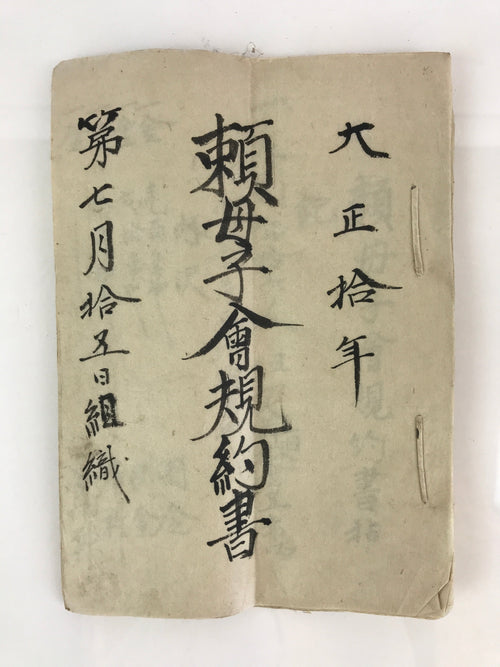 大正拾年
頼母子會規約書
第七月拾五日組織